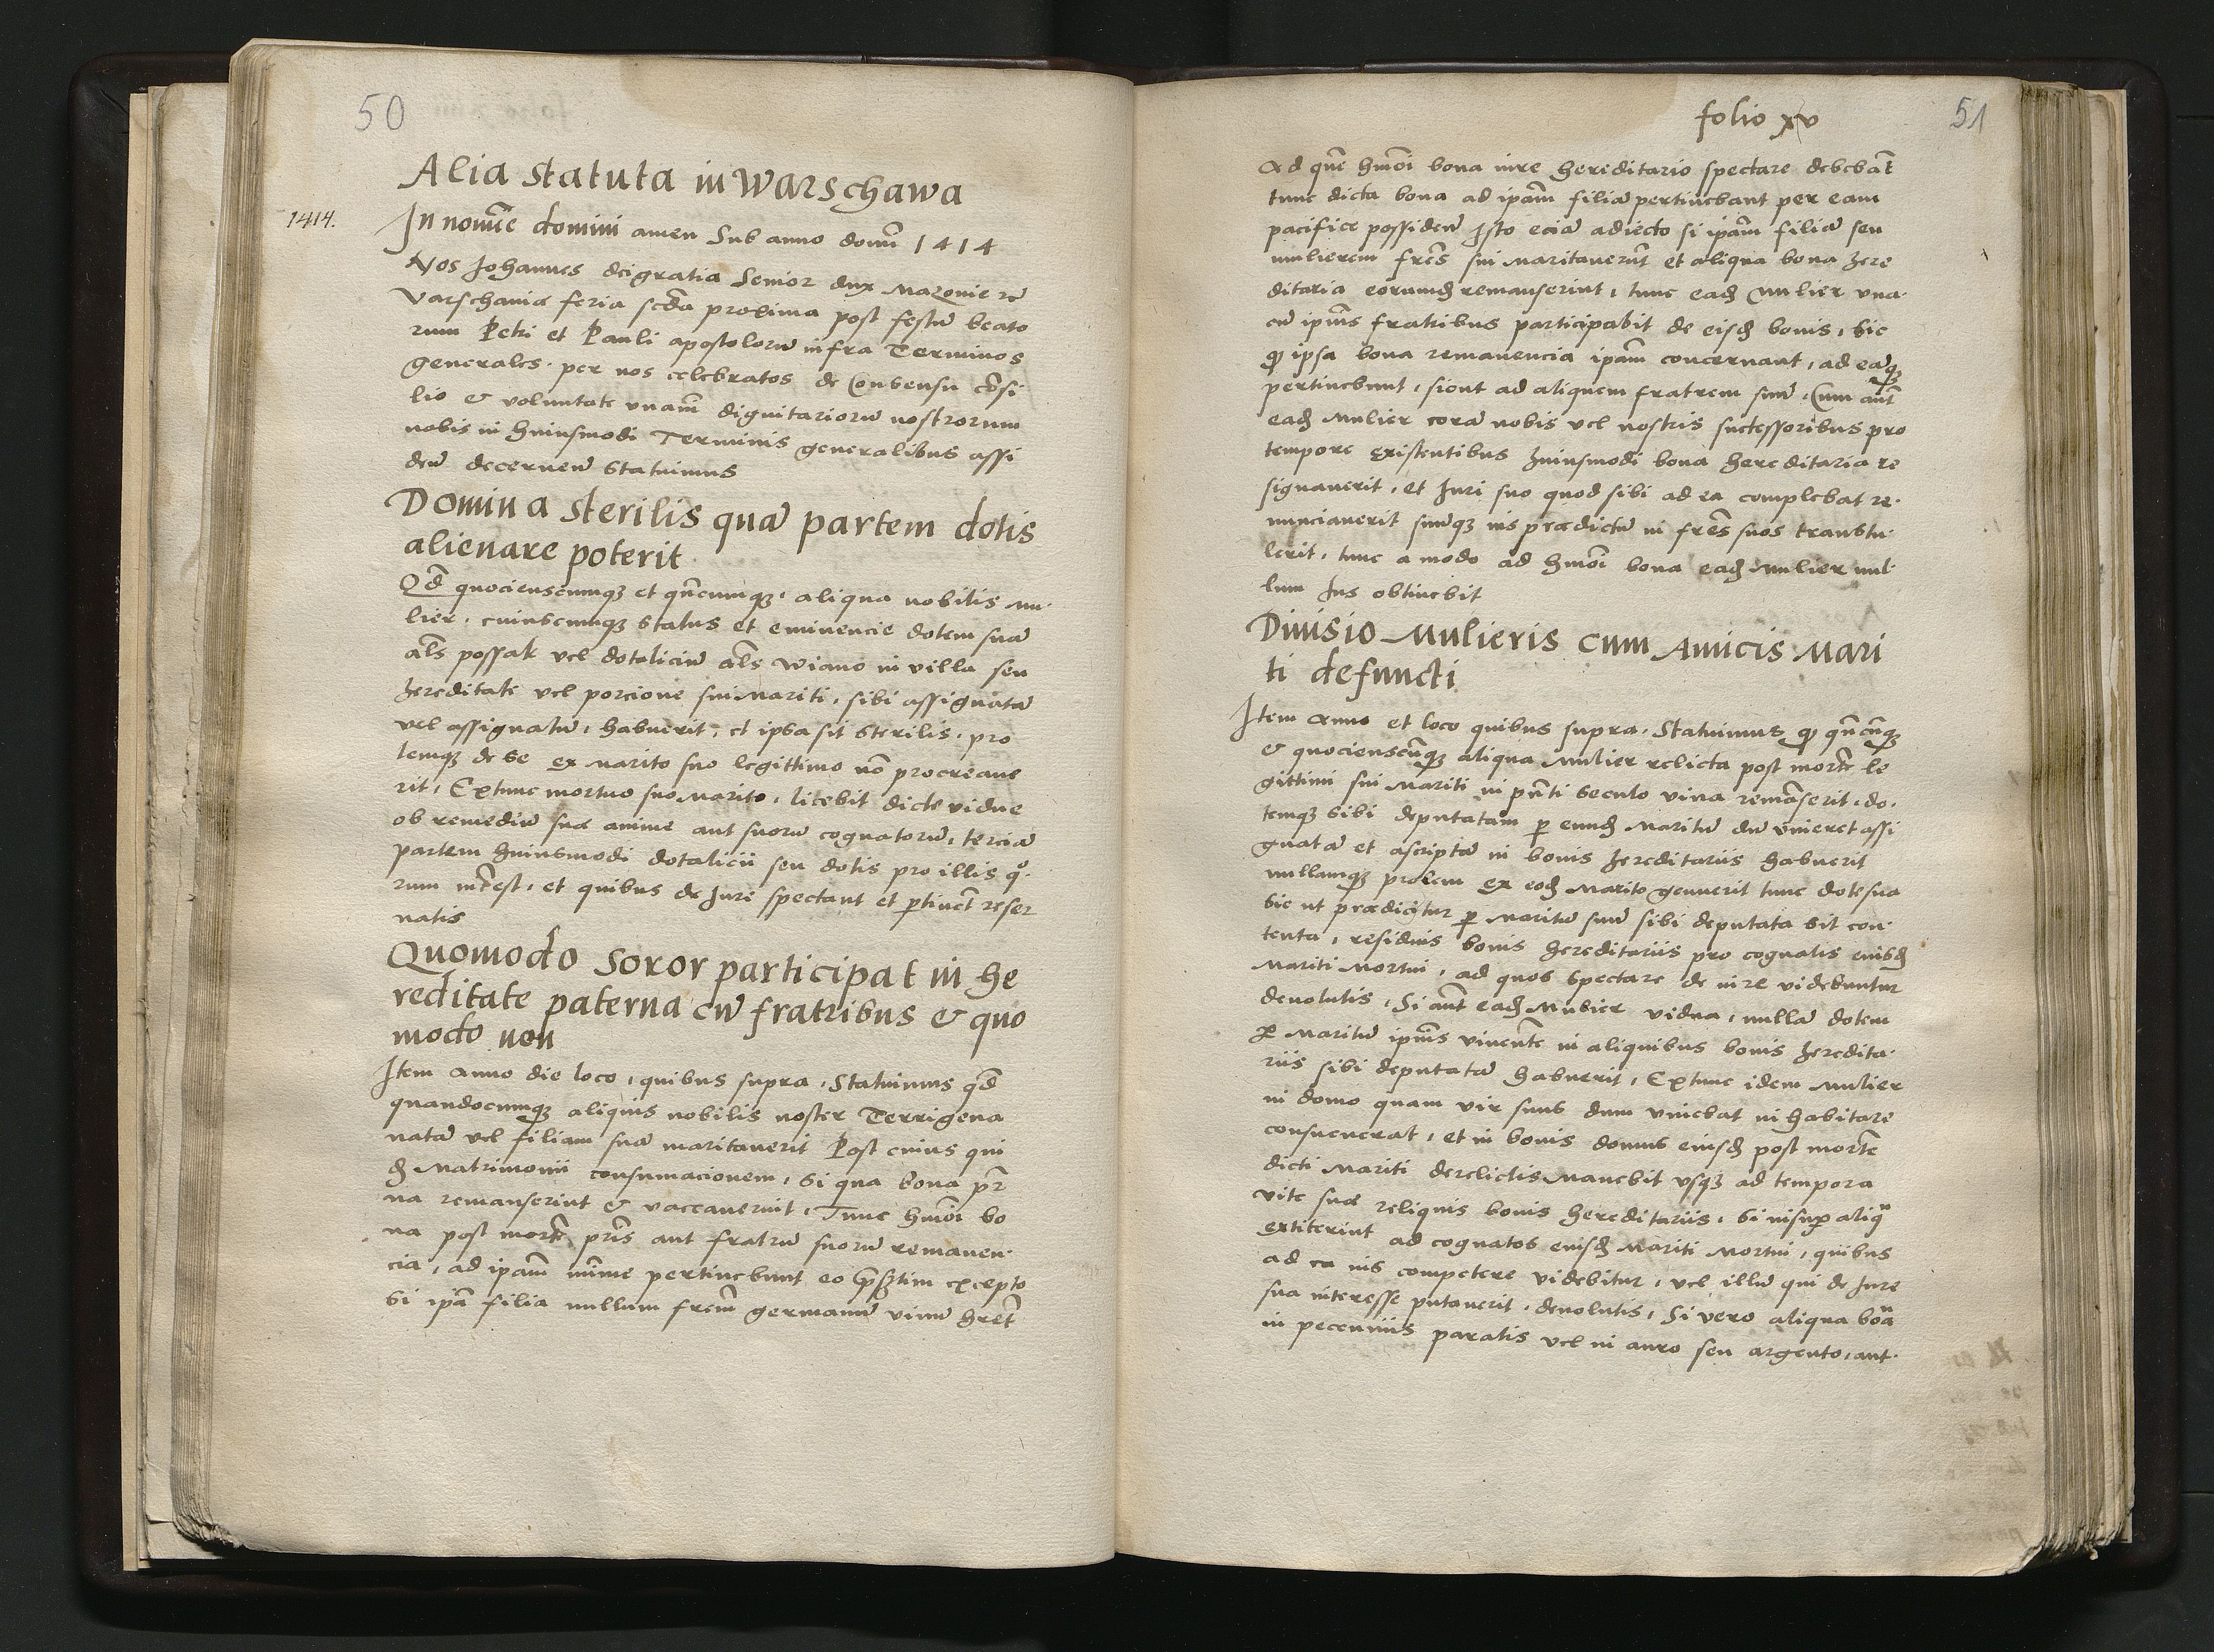 50
Alia statuta in Warschawa
1414.
In nomīe domini amen Sub anno domī 1414
Nos Johannes deigratia Senior dux Mazovie
Varschaviæ feria scḋa proxima post festū beato
rum Petri et Pauli apostolorū infra Terminos
generales. per nos celebratos de Consensu cōsi
lio & voluntate vnanī dignitariorū nostrorum
nobis in huiusmodi Terminis generalibus assi
deñ decerneñ Statuimus
Domina sterilis quā partem dotis
alienare poterit
Qḋ quocienscumqȝ et qn̄cumqȝ, aliqua nobilis mu-
lier, cuiuscumqȝ status et eminencie dotem suā
al̄s possak vel dotaliciū al̄s wiano in villa seu
hereditate vel porcione sui Mariti, sibi assignatā
vel assignatū, habuerit, et ipsa sit sterilis, pro
lemqȝ de se ex Marito suo legittimo nō procreave
rit, Extunc mortuo suo Marito, licebit dicte vidue
ob remediū suæ anime aut suorū cognatorū, terciā
partem huiusmodi dotalicii seu dotis pro illis qͦ-
rum int̄est, et quibus de Jure spectant et ptinēt reser
vatis
Quomodo Soror participat in he
reditate paterna cū fratribus & quo
modo non
Item Anno die loco, quibus supra, Statuimus qḋ
quandocumqȝ aliquis nobilis noster Terrigena
natā vel filiam suā maritaverit Post cuius qui
dȝ Matrimonii consumacionem, Si qua bona pr̄
na remanserint & vaccaverint, Tunc hm̄oi bo
na post mortē pr̄is aut fratrū suorū remanen-
cia, ad ipām mīme pertinebunt eo excepto
Si ipā filia nullum frēm germanū vivū hrēt
folio xv
51
Ad quē hm̄oi bona iure hereditario spectare debebāt
tunc dicta bona ad ipām filiā pertinebant per eam
pacifice possideñ Isto eciā adiecto si ipām filiā seu
mulierem frēs sui maritaverint et aliqua bona here
ditaria eorumdȝ remanserint, tunc eadȝ Mulier vna-
cū ipīus fratribus participabit de eisdȝ bonis, Sic
qͩ ipsa bona remanencia ipām concernant, ad eāqȝ
pertinebunt, sicut ad aliquem fratrem suū, Cum aut̄
eadȝ Mulier corā nobis vel nostris successoribus pro
tempore existentibus huiusmodi bona hereditaria re
signaverit, et Juri suo quod sibi ad ea complebat re-
nunciaverit suūqȝ ius prædictū in frēs suos transtu-
lerit, tunc a modo ad hm̄oi bona eadȝ Mulier nul-
lum Jus obtinebit
Divisio Mulieris cum Amicis Mari
ti defuncti
Item Anno et loco quibus supra, Statuimus qͩ qn̄cūqȝ
& quocienscūqȝ aliqua Mulier relicta post mortē le
gittimi sui Mariti in pn̄ti seculo viva remāserit, do-
temqȝ sibi deputatam p eundȝ Maritū dū viveret assi
gnatā et ascriptā in bonis hereditariis habuerit
nullamqȝ prolem ex eodȝ Marito genuerit tunc dote sua
sic ut prædicitur p Maritū suū sibi deputata sit con-
tenta, residuis bonis hereditariis pro cognatis eiusdȝ
Mariti Mortui, ad quos spectare de iure videbuntur
devolutis, Si aut̄ eadȝ Mulier vidua, nullā dotem
p Maritū ipīus viventē in aliquibus bonis heredita-
riis sibi deputatā habuerit, Extunc idem Mulier
in domo quam vir suus dum vivebat inhabitare
consueverat, et in bonis domus eiusdȝ post mortē
dicti Mariti derelictis Manebit vsqȝ ad tempora
vite suæ reliquis bonis hereditariis, si insup aliqᵃ
extiterint ad cognatos eiusdȝ Mariti Mortui, quibus
ad ea ius competere videbitur, vel illū qui de Jure
sua interesse putaverit, devolutis, Si vero aliqua boā
in peccuniis paratis vel in auro seu argento, aut-